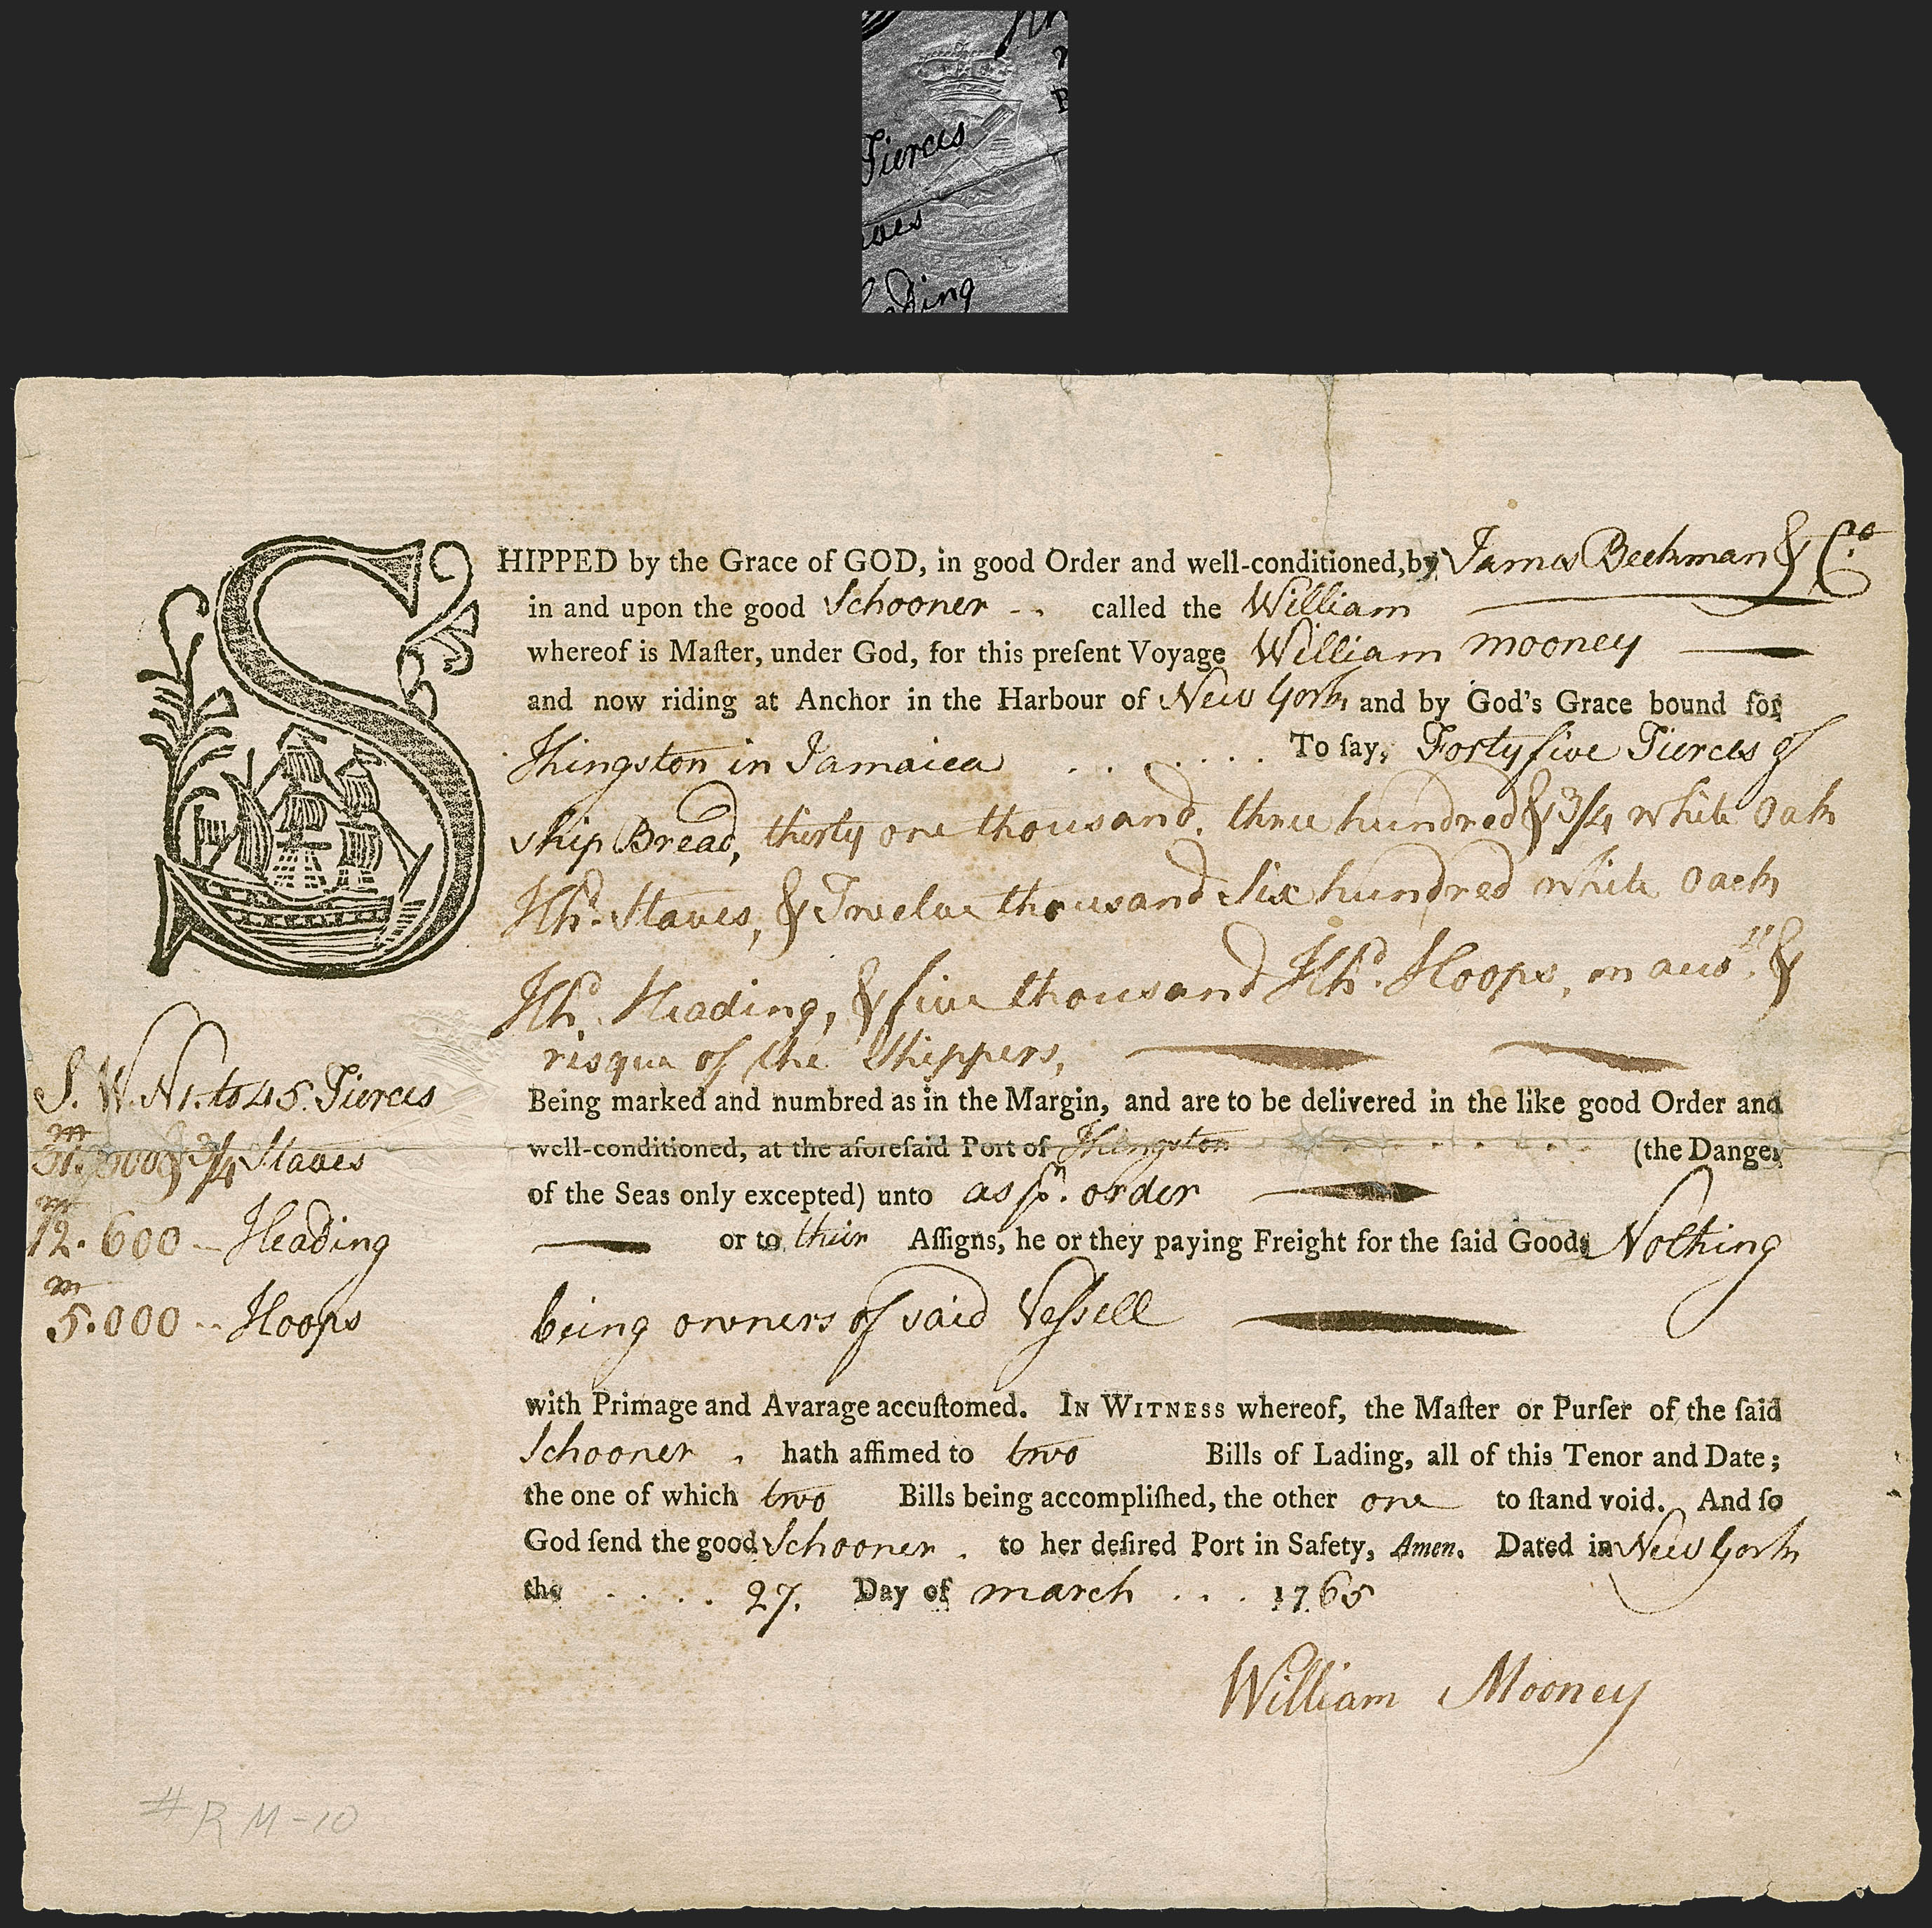 Tierces
aves
ading
SHIPPED by the Grace of GOD, in good Order and well-conditioned, by James Beekman & Co.
in and upon the good Schooner -- called the William
whereof is Maſter, under God, for this preſent Voyage William mooney
and now riding at Anchor in the Harbour of New York and by God's Grace bound for
Kingston in Jamaica . . . . . . . To ſay, Forty five Tierces of
ship Bread, thirty one thousand, three hundred & 3/4 white Oak
Hhd. Staves, & Twelve thousand Six hundred white Oack
Hhd. Heading, & five thousand Hhd. Hoops, on &
risque of the Shippers,
Being marked and numbred as in the Margin, and are to be delivered in the like good Order and
well-conditioned, at the aforeſaid Port of Kingston (the Danger
of the Seas only excepted) unto as pr. order
or to their Aſſigns, he or they paying Freight for the ſaid Goods Nothing
being owners of said Veſsell
with Primage and Avarage accuſtomed. IN WITNESS whereof, the Maſter or Purſer of the ſaid
Schooner . hath affimed to two Bills of Lading, all of this Tenor and Date;
the one of which two Bills being accompliſhed, the other one to ſtand void. And ſo
God ſend the good Schooner . to her deſired Port in Safety, Amen. Dated in New York
the . . . . 27. Day of march . . . 1765
William Mooney
S. W. N1. to 45. Tierces
m
& 3/4 Staves
m
12. 600 -- Heading
m
5. 000 -- Hoops
# RM-10